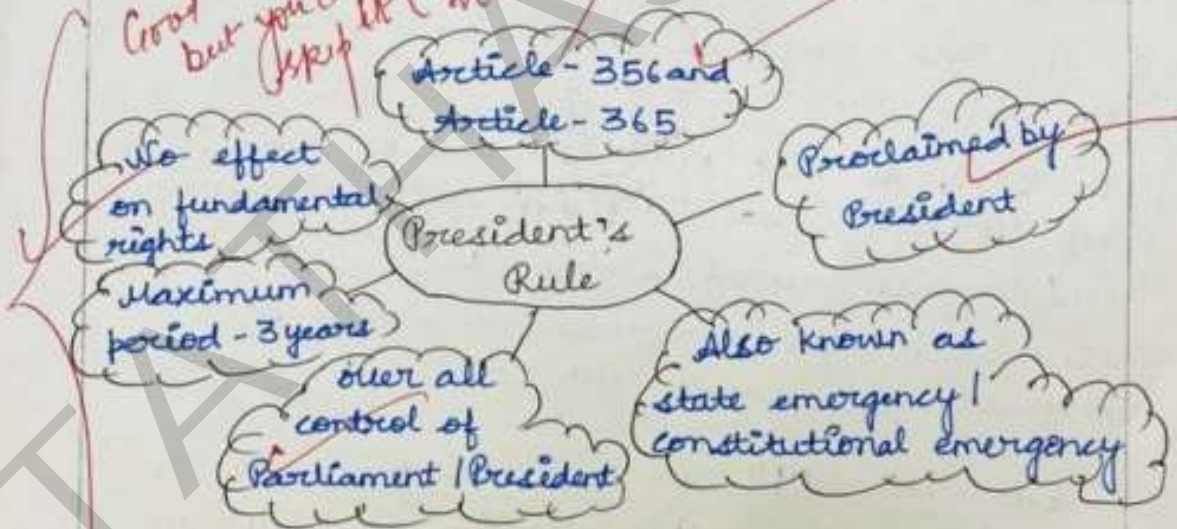 Good
but you
skip it
Article - 356 and
Article - 365
No effect
on fundamental
rights
Proclaimed by
President
President's
Rule
Maximum
period - 3 years
over all
control of
Parliament / President
Also known as
state emergency /
constitutional emergency